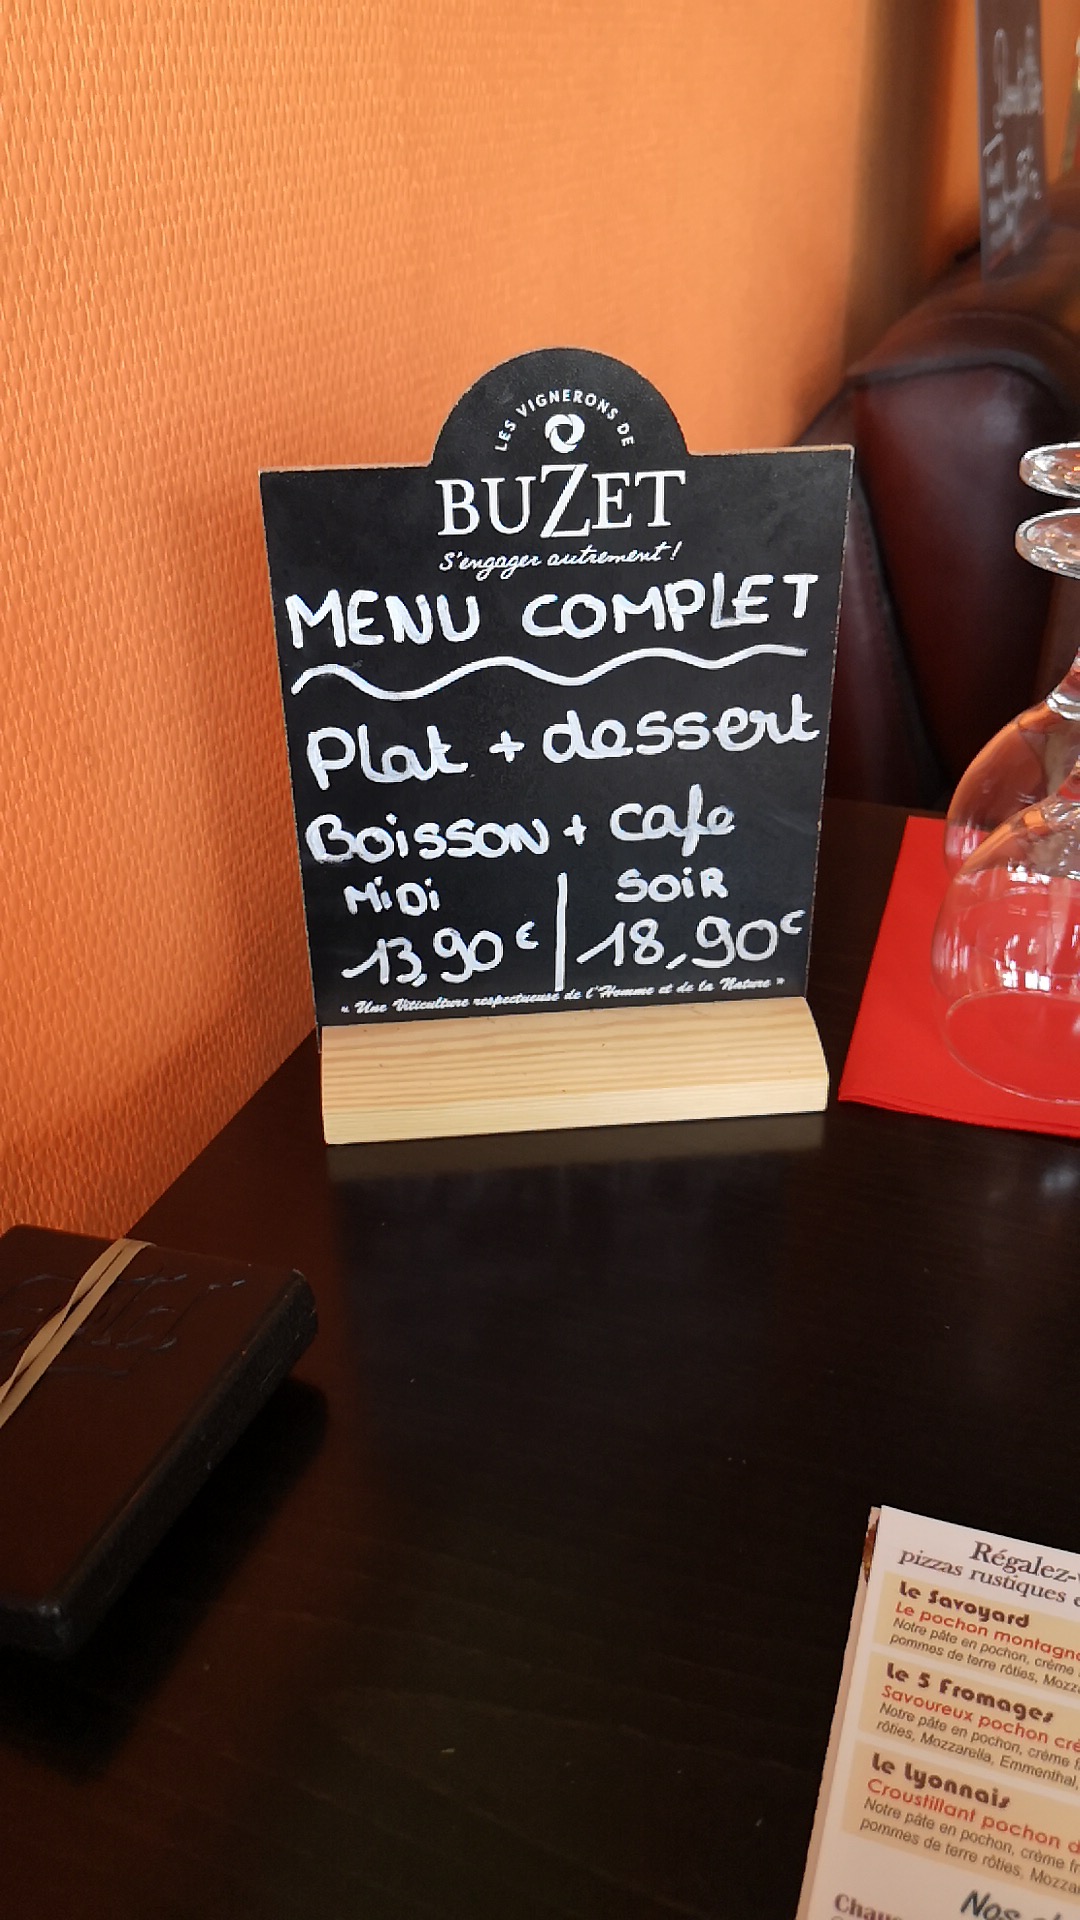 LES VIGNERONS DE
BUZET
S'engager autrement !
MENU COMPLET
Plat + dessert
Boisson + cafe
MiDi SOiR
13,90€ 18,90€
« Une Viticulture respectueuse de l'Homme et de la Nature »
Régalez-
pizzas rustiques
Le Savoyard
Le pochon montagn
Notre pâte en pochon, crème
pommes de terre rôties, Mozz
Le 5 Fromages
Savoureux pochon cr
Notre pâte en pochon, crème f
rôties, Mozzarella, Emmenthal,
Le Lyonnais
Croustillant pochon d
Notre pâte en pochon, crème fr
pommes de terre rôties, Mozza
Nos
Chau